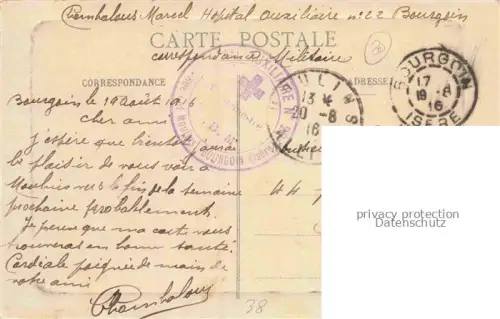 Chambalous Marcel Hopital auxiliaire n: 22 Bourgoin
CARTE POSTALE
correspondance Militaire
CORRESPONDANCE
ADRESSE
BOURGOIN
17
19-8
16
ISERE
13
20-8
16
BOURGOIN
Bourgoin le 19 Août 1916
cher ami
J'espère que bientôt j'aurai
le plaisir de vous voir à
Moulins vers la fin de la semaine
prochaine probablement.
Je pense que ma carte vous
trouveras en bonne santé
Cordiale poignée de mains de
votre ami
Chambalous
44
38
privacy protection
Datenschutz